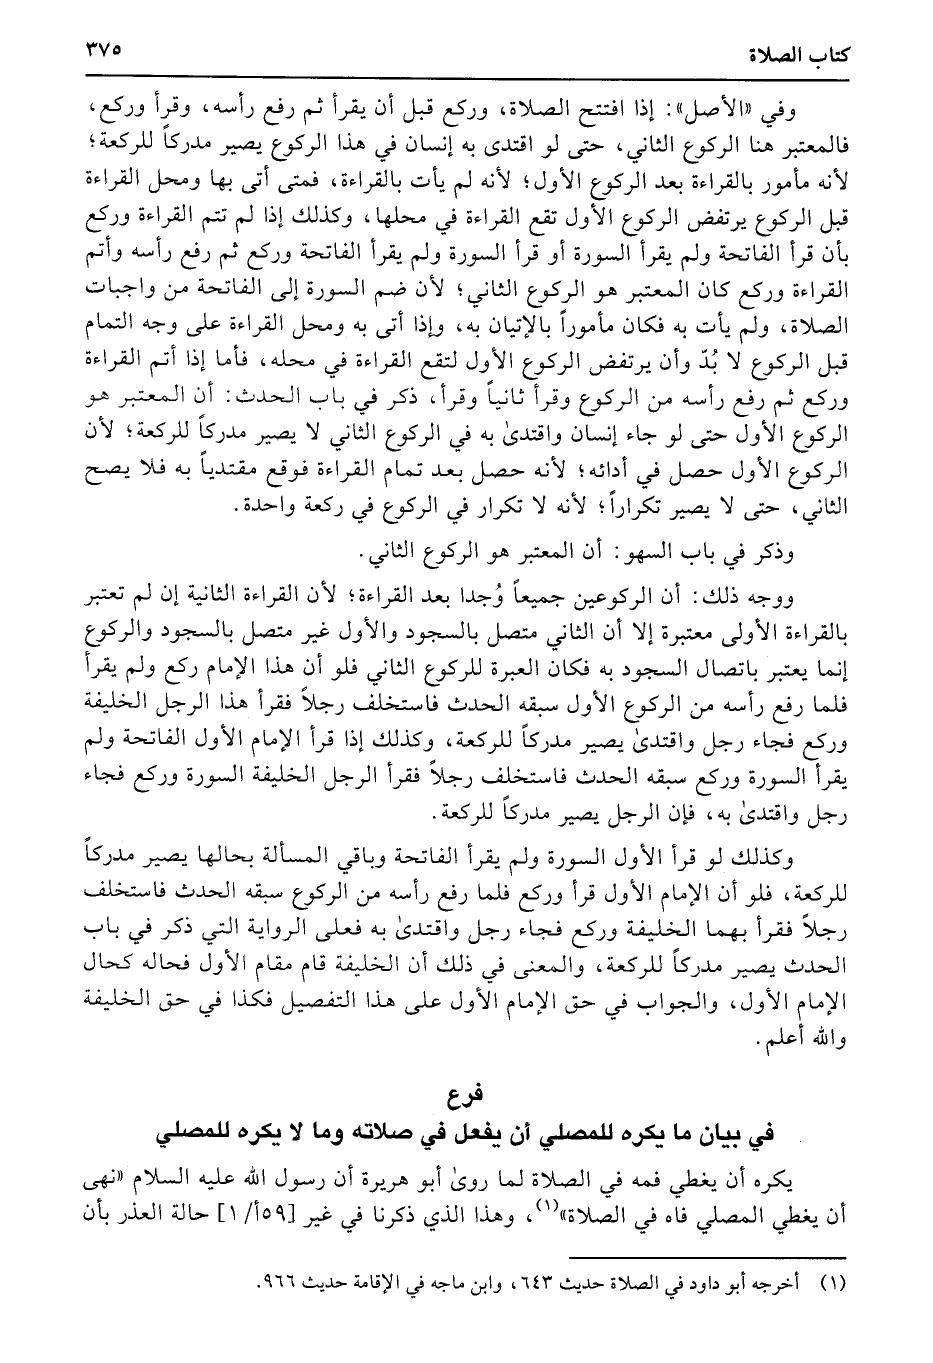 كتاب الصلاة ٣٧٥
وفي «الأصل»: إذا افتتح الصلاة، وركع قبل أن يقرأ ثم رفع رأسه، وقرأ وركع،
فالمعتبر هنا الركوع الثاني، حتى لو اقتدى به إنسان في هذا الركوع يصير مدركاً للركعة؛
لأنه مأمور بالقراءة بعد الركوع الأول؛ لأنه لم يأت بالقراءة، فمتى أتى بها ومحل القراءة
قبل الركوع يرتفض الركوع الأول تقع القراءة في محلها، وكذلك إذا لم تتم القراءة وركع
بأن قرأ الفاتحة ولم يقرأ السورة أو قرأ السورة ولم يقرأ الفاتحة وركع ثم رفع رأسه وأتم
القراءة وركع كان المعتبر هو الركوع الثاني؛ لأن ضم السورة إلى الفاتحة من واجبات
الصلاة، ولم يأت به فكان مأموراً بالإتيان به، وإذا أتى به ومحل القراءة على وجه التمام
قبل الركوع لا بُدّ وأن يرتفض الركوع الأول لتقع القراءة في محله، فأما إذا أتم القراءة
وركع ثم رفع رأسه من الركوع وقرأ ثانياً وقرأ، ذكر في باب الحدث: أن المعتبر هو
الركوع الأول حتى لو جاء إنسان واقتدىٰ به في الركوع الثاني لا يصير مدركاً للركعة؛ لأن
الركوع الأول حصل في أدائه؛ لأنه حصل بعد تمام القراءة فوقع مقتدياً به فلا يصح
الثاني، حتى لا يصير تكراراً؛ لأنه لا تكرار في الركوع في ركعة واحدة.
وذكر في باب السهو: أن المعتبر هو الركوع الثاني.
ووجه ذلك: أن الركوعين جميعاً وُجدا بعد القراءة؛ لأن القراءة الثانية إن لم تعتبر
بالقراءة الأولى معتبرة إلا أن الثاني متصل بالسجود والأول غير متصل بالسجود والركوع
إنما يعتبر باتصال السجود به فكان العبرة للركوع الثاني فلو أن هذا الإمام ركع ولم يقرأ
فلما رفع رأسه من الركوع الأول سبقه الحدث فاستخلف رجلاً فقرأ هذا الرجل الخليفة
وركع فجاء رجل واقتدىٰ يصير مدركاً للركعة، وكذلك إذا قرأ الإمام الأول الفاتحة ولم
يقرأ السورة وركع سبقه الحدث فاستخلف رجلاً فقرأ الرجل الخليفة السورة وركع فجاء
رجل واقتدىٰ به، فإن الرجل يصير مدركاً للركعة.
وكذلك لو قرأ الأول السورة ولم يقرأ الفاتحة وباقي المسألة بحالها يصير مدركاً
للركعة، فلو أن الإمام الأول قرأ وركع فلما رفع رأسه من الركوع سبقه الحدث فاستخلف
رجلاً فقرأ بهما الخليفة وركع فجاء رجل واقتدىٰ به فعلى الرواية التي ذكر في باب
الحدث يصير مدركاً للركعة، والمعنى في ذلك أن الخليفة قام مقام الأول فحاله كحال
الإمام الأول، والجواب في حق الإمام الأول على هذا التفصيل فكذا في حق الخليفة
والله أعلم.
فرع
في بيان ما يكره للمصلي أن يفعل في صلاته وما لا يكره للمصلي
يكره أن يغطي فمه في الصلاة لما روىٰ أبو هريرة أن رسول الله عليه السلام «نهى
أن يغطي المصلي فاه في الصلاة»(١)، وهذا الذي ذكرنا في غير [٥٩أ/ ١] حالة العذر بأن
(١) أخرجه أبو داود في الصلاة حديث ٦٤٣، وابن ماجه في الإقامة حديث ٩٦٦.